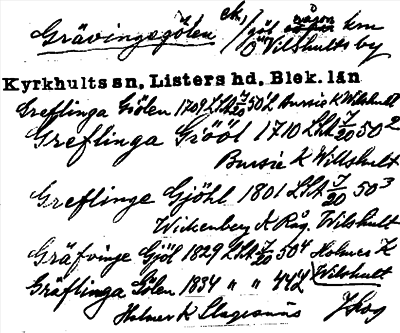 Grävingsgölen ck, 1/ göl någon km
O om Vilshults by
Kyrkhults sn, Listers hd, Blek. län
Greflinga Giölen 1709 LSA J/20 50¹ Bursie K Wilshult
Greflinga Giööl 1710 LSA J/20 50²
Bursie K Willshult
Greflinge Gjöhl 1801 LSA J/20 50³
Wickenberg A Råg. Wilshult
Gräfvinge Gjöl 1829 LSA J/20 50⁴ Holmer K
Wilshult
Gräflinga Gölen 1834 " " 44²
Holmer K Slagesnäs JSkog